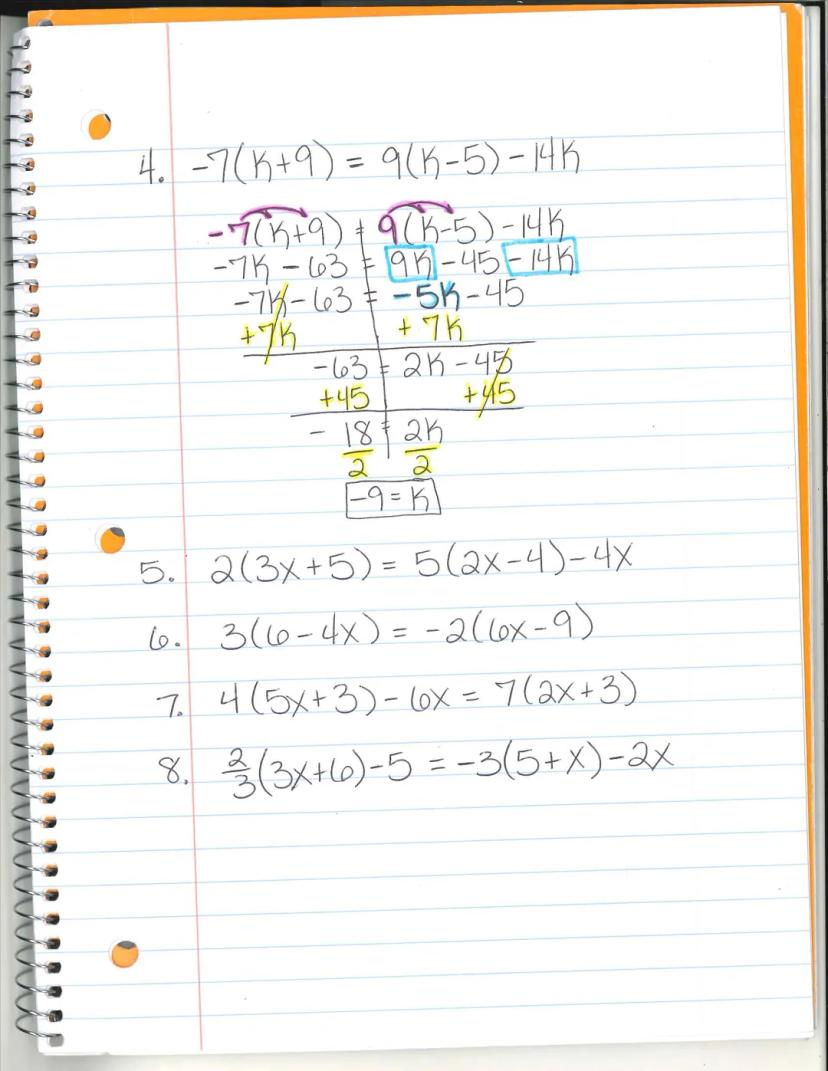 4. -7(K+9) = 9(K-5)-14K
-7(K+9) = 9(K-5)-14K
-7K - 63 = 9K - 45 - 14K
-7K - 63 = -5K - 45
+7K + 7K
-63 = 2K - 45
+45 +45
- 18 = 2K
2 2
-9 = K
5. 2(3x+5) = 5(2x-4)-4x
6. 3(6-4x) = -2(6x-9)
7. 4(5x+3)-6x = 7(2x+3)
8. 2/3(3x+6)-5 = -3(5+x)-2x